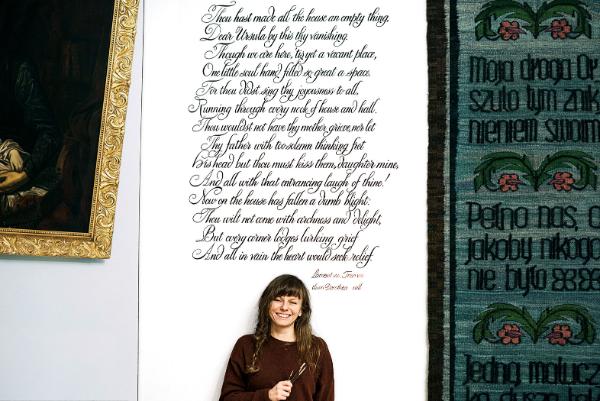 Thou hast made all the house an empty thing,
Dear Ursula by this thy vanishing.
Though we are here, 'tis yet a vacant place,
One little soul hath filled so great a space.
For thou didst sing thy joyousness to all,
Running through every nook of house and hall.
Thou wouldst not have thy mother grieve, nor let
Thy father with too solemn thinking fret
His head but thou must kiss them, daughter mine,
And all with that entrancing laugh of thine!
Now on the house has fallen a dumb blight:
Thou wilt not come with archness and delight,
But every corner lodges lurking grief
And all in vain the heart would seek relief.
Moja droga Or
szulo tym znik
nieniem swoim
Pełno nas, a
jakoby nikogo
nie było
Jedną malucz